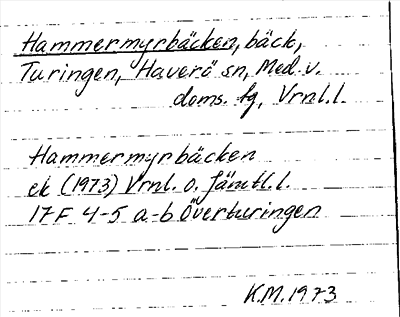 Hammermyrbäcken, bäck,
Turingen, Haverö sn, Med. v.
doms. tg, Vrnl. l.
Hammermyrbäcken
ek (1973) Vrnl. o. Jämtl. l.
17 F 4-5 a-b Överturingen
K.M. 1973